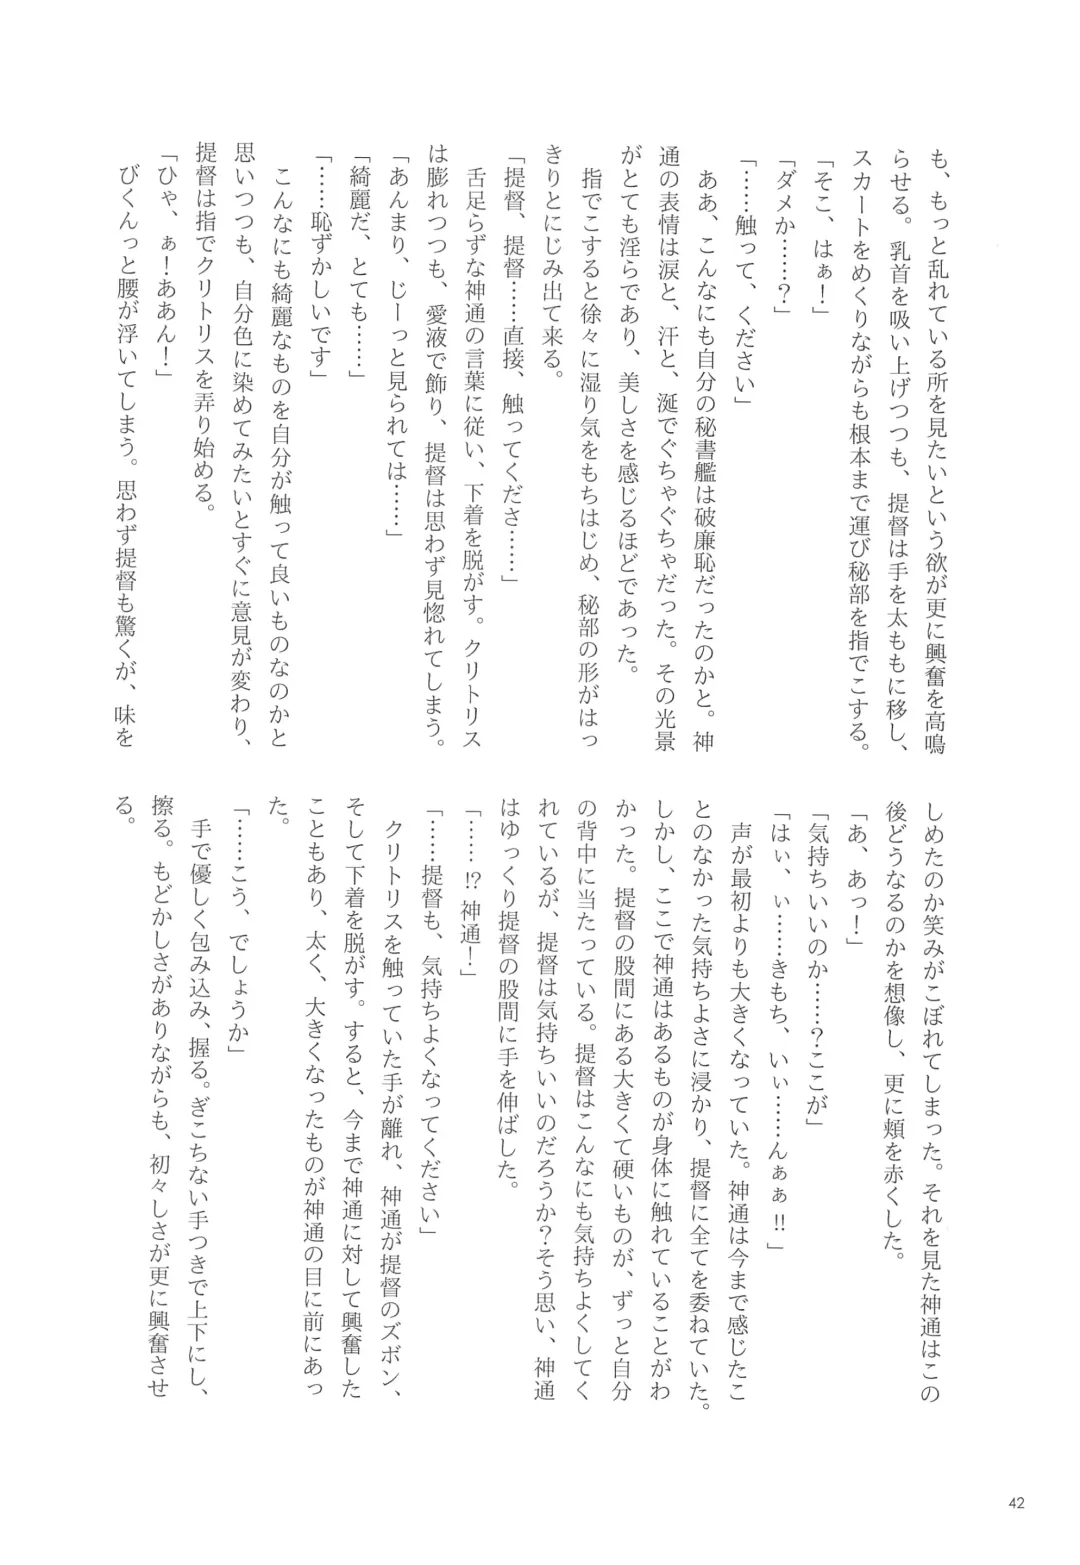 も、もっと乱れている所を見たいという欲が更に興奮を高鳴
らせる。乳首を吸い上げつつも、提督は手を太ももに移し、
スカートをめくりながらも根本まで運び秘部を指でこする。
「そこ、はぁ！」
「ダメか……？」
「……触って、ください」
ああ、こんなにも自分の秘書艦は破廉恥だったのかと。神
通の表情は涙と、汗と、涎でぐちゃぐちゃだった。その光景
がとても淫らであり、美しさを感じるほどであった。
指でこすると徐々に湿り気をもちはじめ、秘部の形がはっ
きりとにじみ出て来る。
「提督、提督……直接、触ってくださ……」
舌足らずな神通の言葉に従い、下着を脱がす。クリトリス
は膨れつつも、愛液で飾り、提督は思わず見惚れてしまう。
「あんまり、じーっと見られては……」
「綺麗だ、とても……」
「……恥ずかしいです」
こんなにも綺麗なものを自分が触って良いものなのかと
思いつつも、自分色に染めてみたいとすぐに意見が変わり、
提督は指でクリトリスを弄り始める。
「ひゃ、ぁ！ああん！」
びくんっと腰が浮いてしまう。思わず提督も驚くが、味を
しめたのか笑みがこぼれてしまった。それを見た神通はこの
後どうなるのかを想像し、更に頬を赤くした。
「あ、あっ！」
「気持ちいいのか……？ここが」
「はぃ、ぃ……きもち、いぃ……んぁぁ!!」
声が最初よりも大きくなっていた。神通は今まで感じたこ
とのなかった気持ちよさに浸かり、提督に全てを委ねていた。
しかし、ここで神通はあるものが身体に触れていることがわ
かった。提督の股間にある大きくて硬いものが、ずっと自分
の背中に当たっている。提督はこんなにも気持ちよくしてく
れているが、提督は気持ちいいのだろうか？そう思い、神通
はゆっくり提督の股間に手を伸ばした。
「……!?神通！」
「……提督も、気持ちよくなってください」
クリトリスを触っていた手が離れ、神通が提督のズボン、
そして下着を脱がす。すると、今まで神通に対して興奮した
こともあり、太く、大きくなったものが神通の目に前にあっ
た。
「……こう、でしょうか」
手で優しく包み込み、握る。ぎこちない手つきで上下にし、
擦る。もどかしさがありながらも、初々しさが更に興奮させ
る。
42